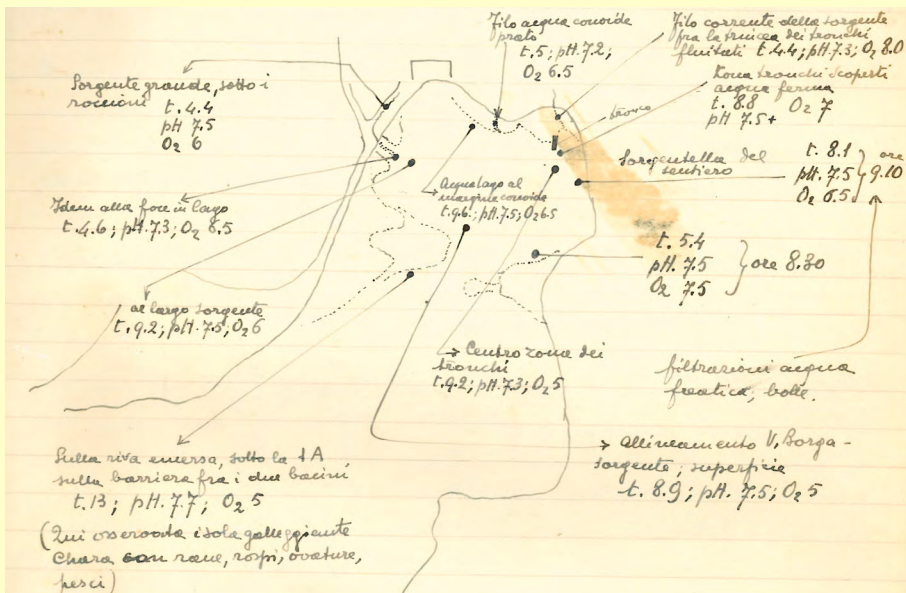 Filo acqua conoide
prato
t. 5; pH. 7.2;
O₂ 6.5
Filo corrente della sorgente
fra la trincea dei tronchi
fluitati t. 4.4; pH. 7.3; O₂ 8.0
Zona tronchi scoperti
acqua ferma
t. 8.8 O₂ 7
pH 7.5+
Sorgente grande, sotto i
roccioni
t. 4.4
pH 7.5
O₂ 6
tronco
Sorgentella del
sentiero
t. 8.1
pH. 7.5
O₂ 6.5
ore
9.10
Idem alla foce in lago
t. 4.6; pH. 7.3; O₂ 6.5
Acqua lago al
margine conoide
t. 9.6; pH. 7.5; O₂ 6.5
t. 5.4
pH. 7.5
O₂ 7.5
ore 8.30
al largo sorgente
t. 9.2; pH. 7.5; O₂ 6
Centro zona dei
tronchi
t. 9.2; pH. 7.3; O₂ 5
filtrazioni acqua
freatica; bolle.
Sulla riva emersa, sotto la
sulla barriera fra i due bacini
t. 13; pH. 7.7; O₂ 5
(Qui osservata isola galleggiante
Chara con rane, rospi, ovature,
pesci)
Allineamento V. Borga-
sorgente; superficie
t. 8.9; pH. 7.5; O₂ 5